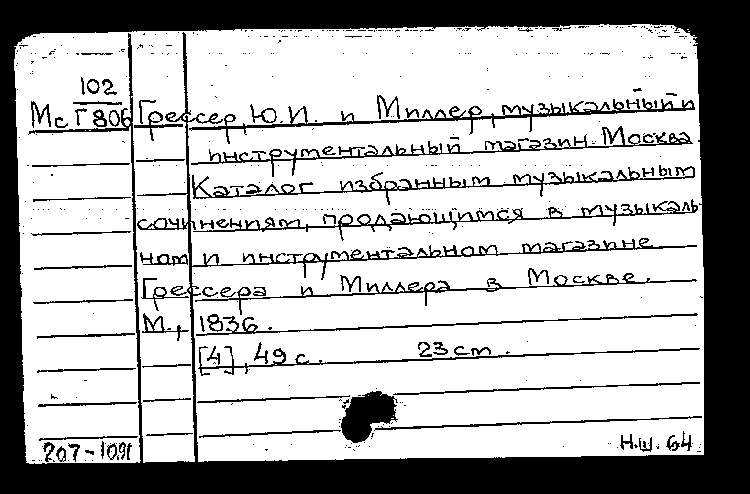 102
Мс Г806 Грессер, Ю.И. и Миллер, музыкальный и
инструментальный магазин. Москва.
Каталог избранным музыкальным
сочинениям, продающимся в музыкаль
ном и инструментальном магазине
Грессера и Миллера в Москве.
М., 1836.
[4], 49 с. 23 см.
207-1091 Н.Ш. 64